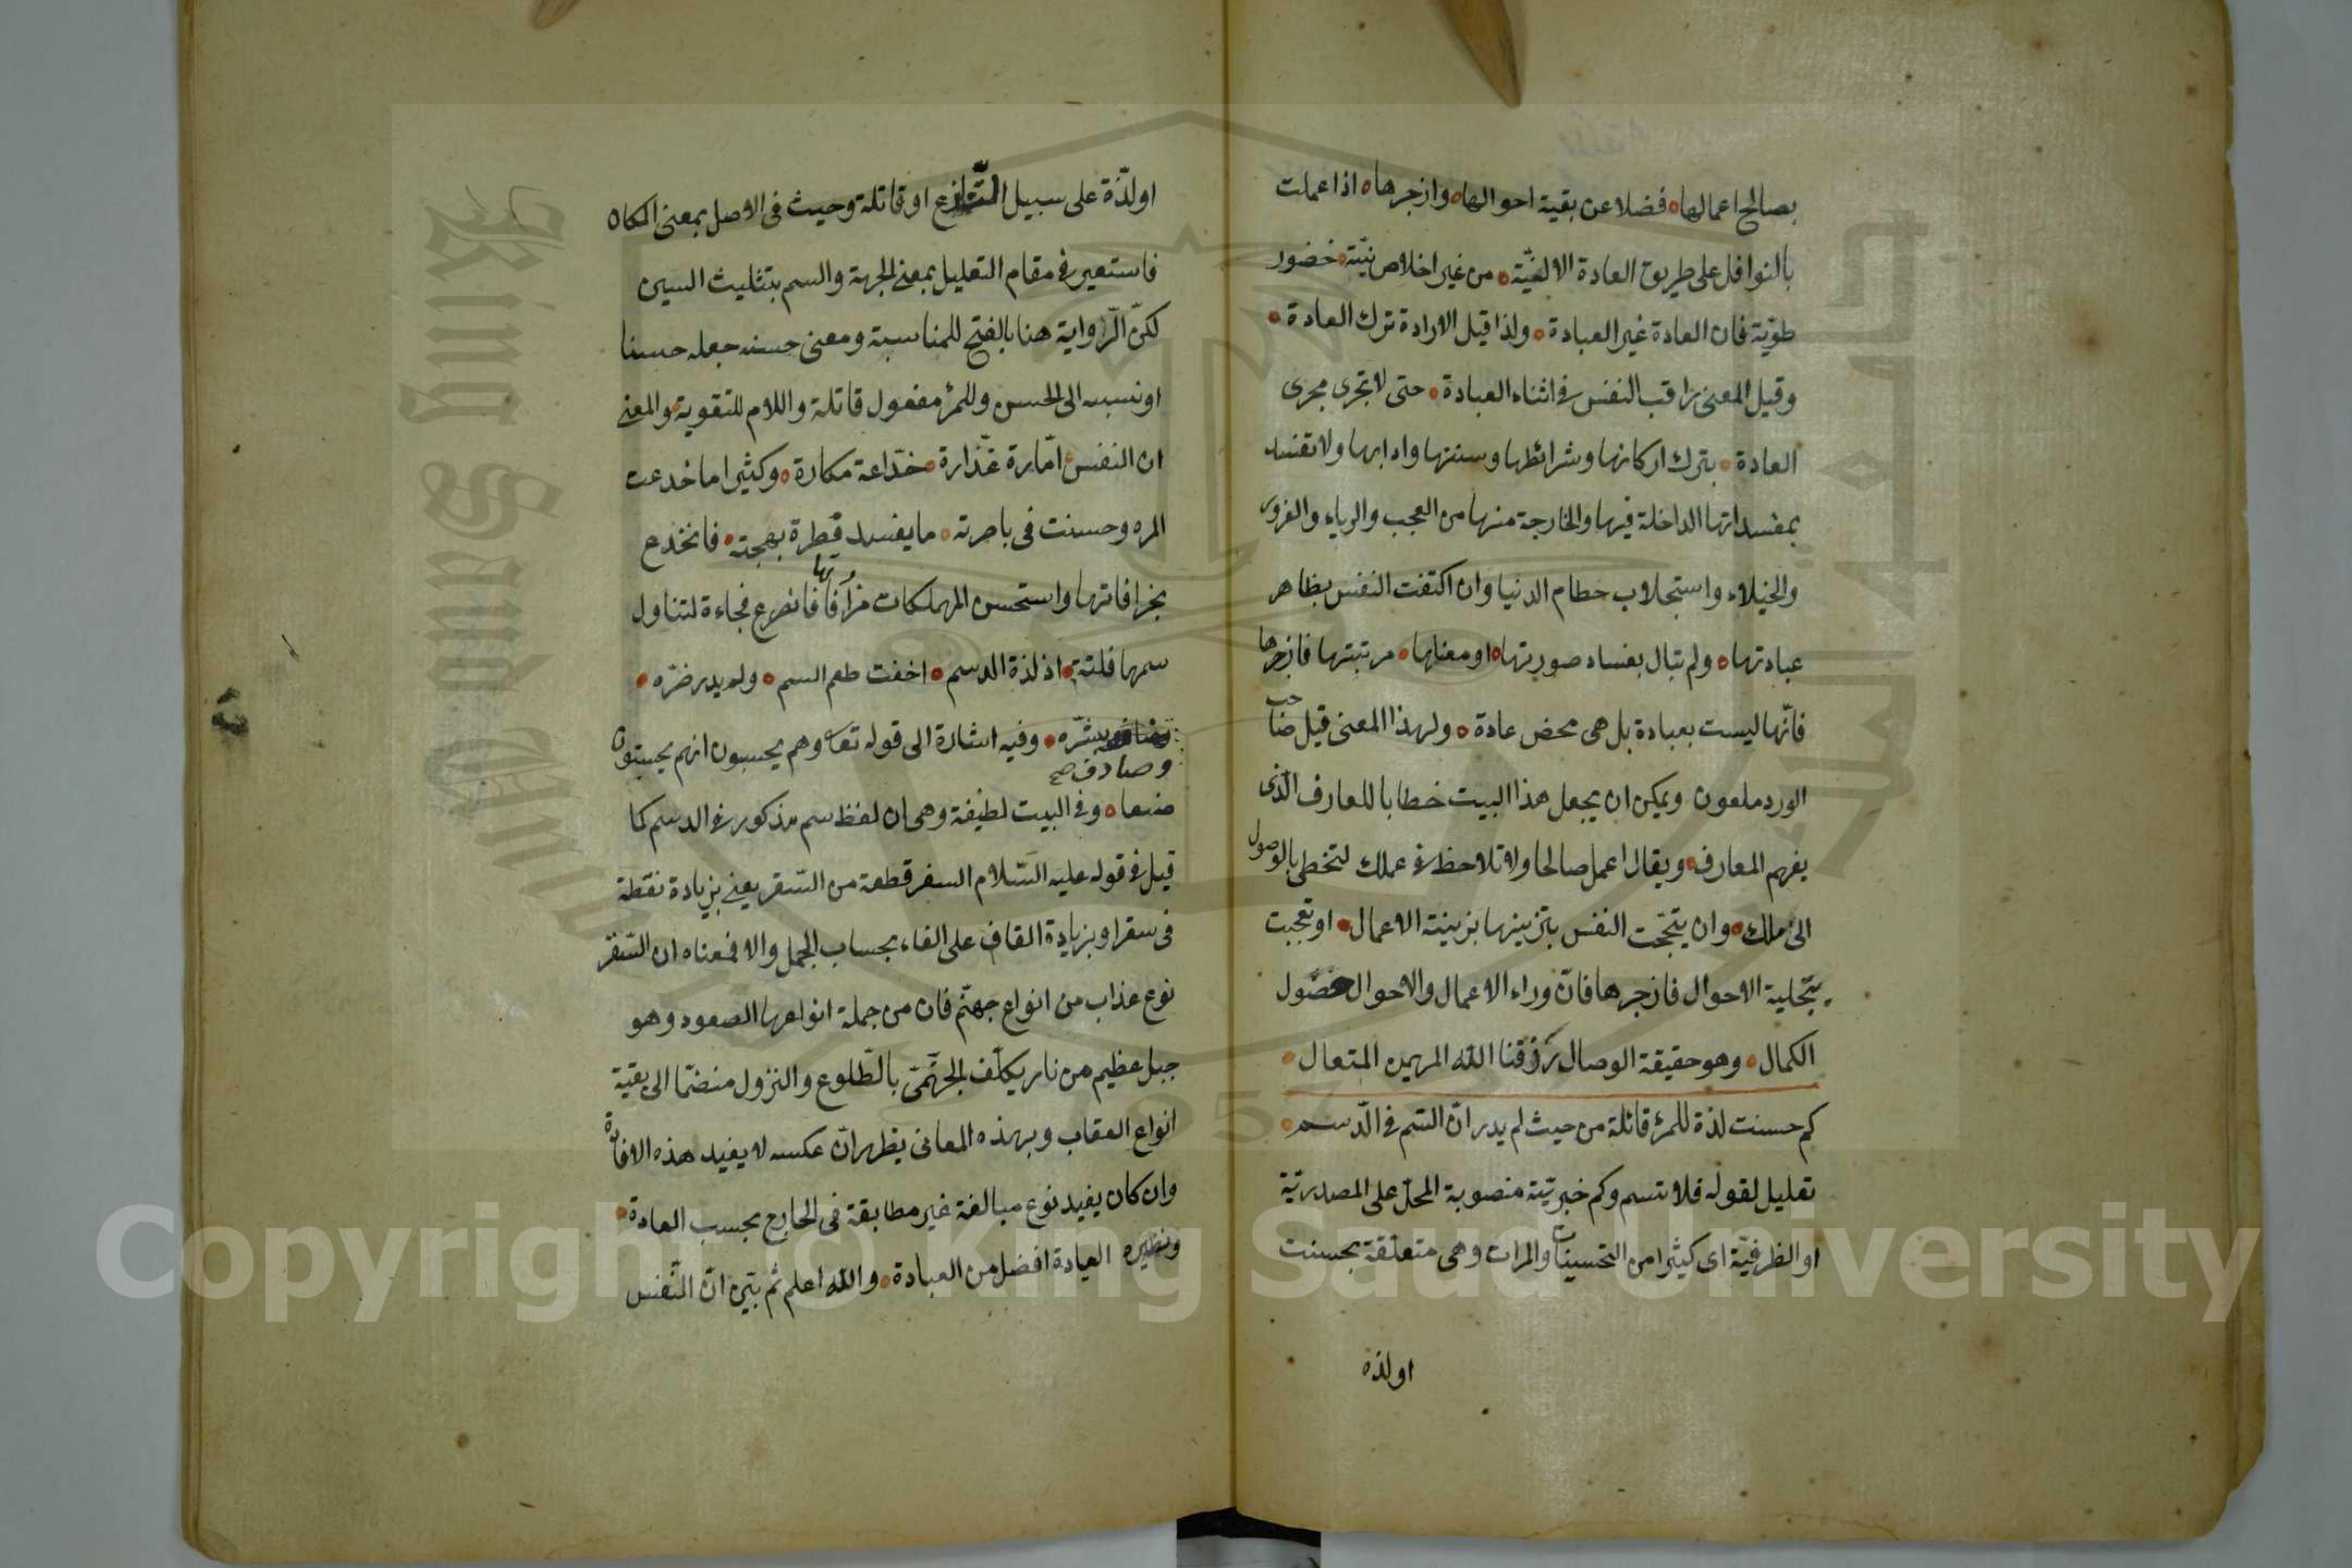 بصالح اعمالها فضلا عن بقية احوالها وازجرها اذا عملت
بالنوافل على طريق العادة الالفيّة من غير اخلاص نيّة خضور
طويّة فان العادة غير العبادة ولذا قيل الارادة ترك العادة
وقيل المعنى راقب النفس فى اثناء العبادة حتى لا تجرى مجرى
العادة بترك اركانها وشرائطها وسننها وادابها ولا تفسد
بمفسداتها الداخلة فيها والخارجة منها من العجب والرياء والغرور
والخيلاء واستجلاب حطام الدنيا وان اكتفت النفس بظاهر
عبادتها ولم تبال بفساد صورتها او معناها مرتبتها فازجرها
فانّها ليست بعبادة بل هى محض عادة ولهذا المعنى قيل صاحب
الورد ملعون ويمكن ان يجعل هذا البيت خطابا للعارف الّذى
يفهم المعارف ويقال اعمل صالحا ولا تلاحظ فى عملك لتحظى بالوصول
الى ملك وان يتجّحت النفس بتزيينها بزينة الاعمال او تعجبت
بتحلية الاحوال فازجرها فانّ وراء الاعمال والاحوال حصول
الكمال وهو حقيقة الوصال رزقنا الله المهيمن المتعال
كم حسنت لذة للمرء قاتلة من حيث لم يدر انّ السّم فى الدّسم
تعليل لقوله فلا تسم وكم خبريّة منصوبة المحلّ على المصدريّة
او الظرفيّة اى كثيرا من التحسينات والمرات وهى متعلّقة بحسنت
او لذه
او لذّة على سبيل التّنازع او قاتلة وحيث فى الاصل بمعنى المكان
فاستعير فى مقام التعليل بمعنى الجهة والسم بتثليث السين
لكنّ الرّواية هنا بالفتح للمناسبة ومعنى حسنه جعله حسنا
او نسبه الى الحسن وللمرء مفعول قاتلة واللام للتقوية والمعنى
ان النفس امّارة غدّارة خدّاعة مكارة وكثيرا ما خدعت
المرء وحسنت فى باصرته ما يفسد فطرة بهجته فانخدع
بخرافاتها واستحسن المهلكات من آفاتها فانصرع فجاءة لتناول
سمها فلتة اذ لذة الدسم اخفت طعم السم ولم يدر ضرّه
وصادف صح بشرّه وفيه اشارة الى قوله تعا وهم يحسبون انهم يحسنون
صنعا وفى البيت لطيفة وهى ان لفظ سم مذكور فى الدسم كما
قيل فى قوله عليه السّلام السفر قطعة من السّقر يعنى بزيادة نقطة
فى سقر او بزيادة القاف على الفاء بحساب الجمل والا فمعناه ان السّفر
نوع عذاب من انواع جهنّم فان من جملة انواعها الصعود وهو
جبل عظيم من نار يكلّف الجهنّمىّ بالطّلوع والنزول منضمّا الى بقيّة
انواع العقاب وبهذه المعانى يظهر انّ عكسه لا يفيد هذه الافادة
وان كان يفيد نوع مبالغة غير مطابقة فى الخارج بحسب العادة
العيادة افضل من العبادة والله اعلم ثم بيّن انّ النّفس
Copyright © King Saud University
King Saud University
1957